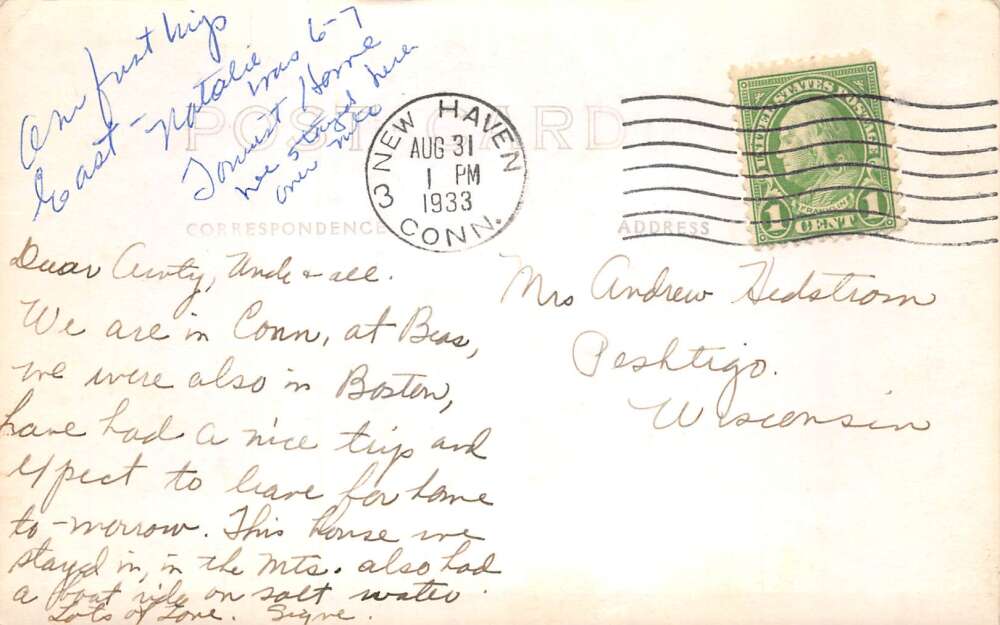 Our first trip
East -
Natalie
was 6-7
Tourist Home
we stayed here
over nite
POST CARD
CORRESPONDENCE
ADDRESS
NEW HAVEN
AUG 31
1 PM
1933
3 CONN.
UNITED STATES POSTAGE
FRANKLIN
1 CENT 1
Dear Aunty, Uncle & all.
We are in Conn, at Beas,
we were also in Boston,
have had a nice trip and
expect to leave for home
to-morrow. This house we
stayed in, in the Mts. also had
a boat ride on salt water.
Lots of Love. Signe.
Mrs Andrew Hedstrom
Peshtigo.
Wisconsin